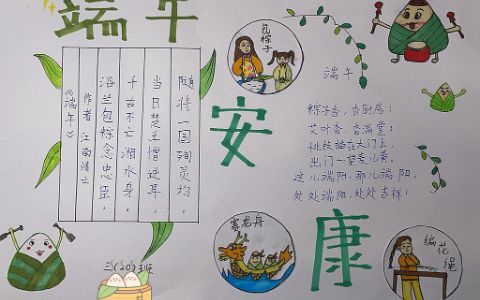 端午
安
康
包粽子
端午
粽子香，香厨房；
艾叶香，香满堂；
桃枝插在大门上，
出门一望麦儿黄，
这儿端阳，那儿端阳，
处处端阳，处处吉祥！
随将一国殉灵均，
当日楚王憎逆耳，
千古不亡湘水身，
浴兰包粽念忠臣，
作者：江南靖士
《端午》
赛龙舟
编花绳
三(20)班